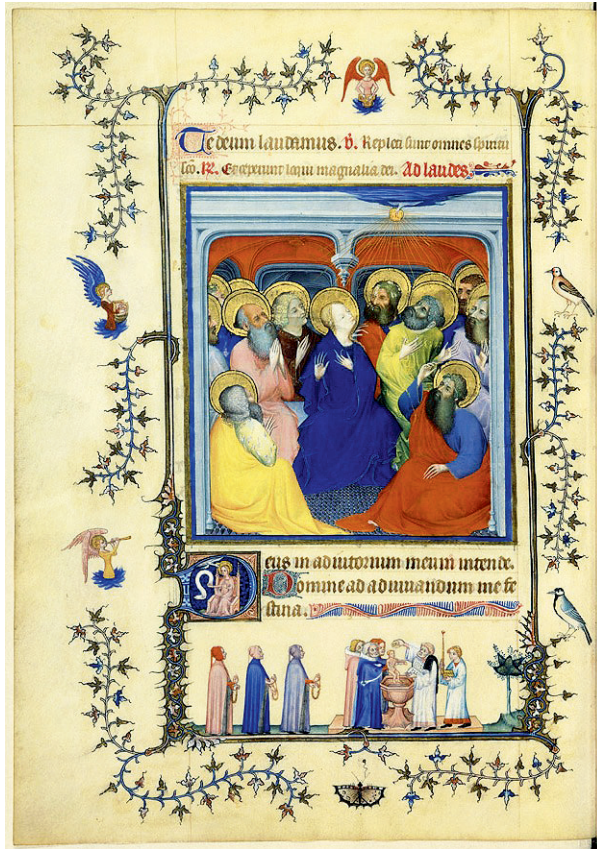 Te deum laudamus. V. Repleti sunt omnes spiritu
sc̃o. R. Et ceperunt loqui magnalia dei. Ad laudes
Deus in adiutorium meum intende.
Domine ad adiuuandum me fe
stina.